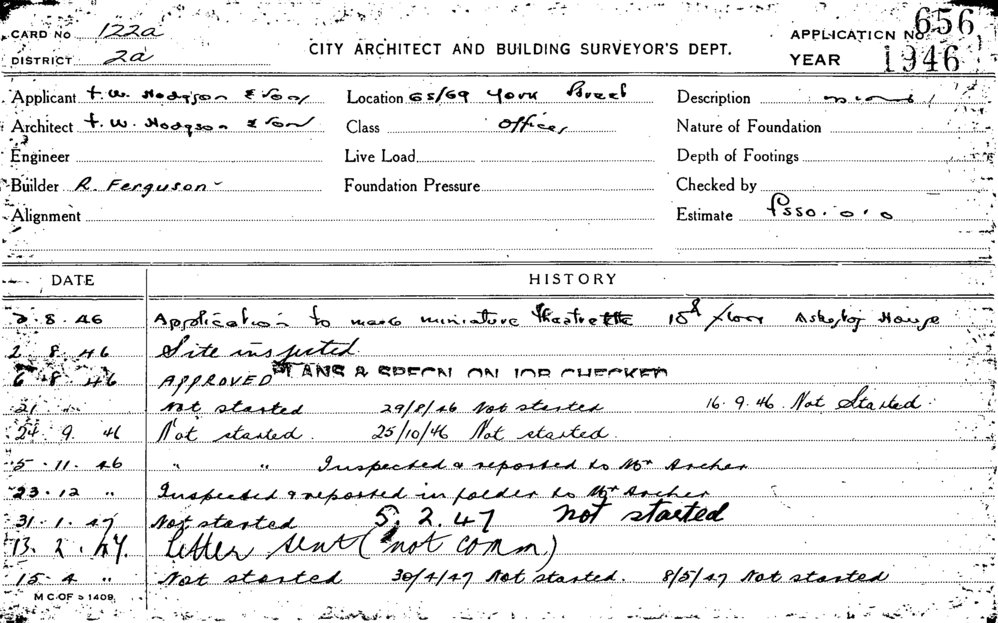 CARD No 122a
DISTRICT 2a
CITY ARCHITECT AND BUILDING SURVEYOR'S DEPT.
APPLICATION No 656
YEAR 1946
Applicant F. W. Hodgson & Son Location 65/69 York Street Description
Architect F. W. Hodgson & Son Class Offices Nature of Foundation
Engineer Live Load Depth of Footings
Builder R. Ferguson Foundation Pressure Checked by
Alignment Estimate £550.0.0
DATE HISTORY
2.8.46 Application to make miniature theatrette 10th floor House
2 8 46 Site inspected
6.8.46 APPROVED PLANS & SPECN ON JOB CHECKED
21 Not started 29/8/46 Not started 16.9.46 Not Started
24 9. 46 Not started. 25/10/46 Not started.
5.11.46 " " Inspected & reported to Mr Archer
23.12 " Inspected & reported in folder to Mr Archer
31.1.47 Not started 5.2.47 not started
13.2.47. Letter sent (not comm)
15.4 " Not started 30/4/47 Not started. 8/5/47 Not started
M C OF S 1409